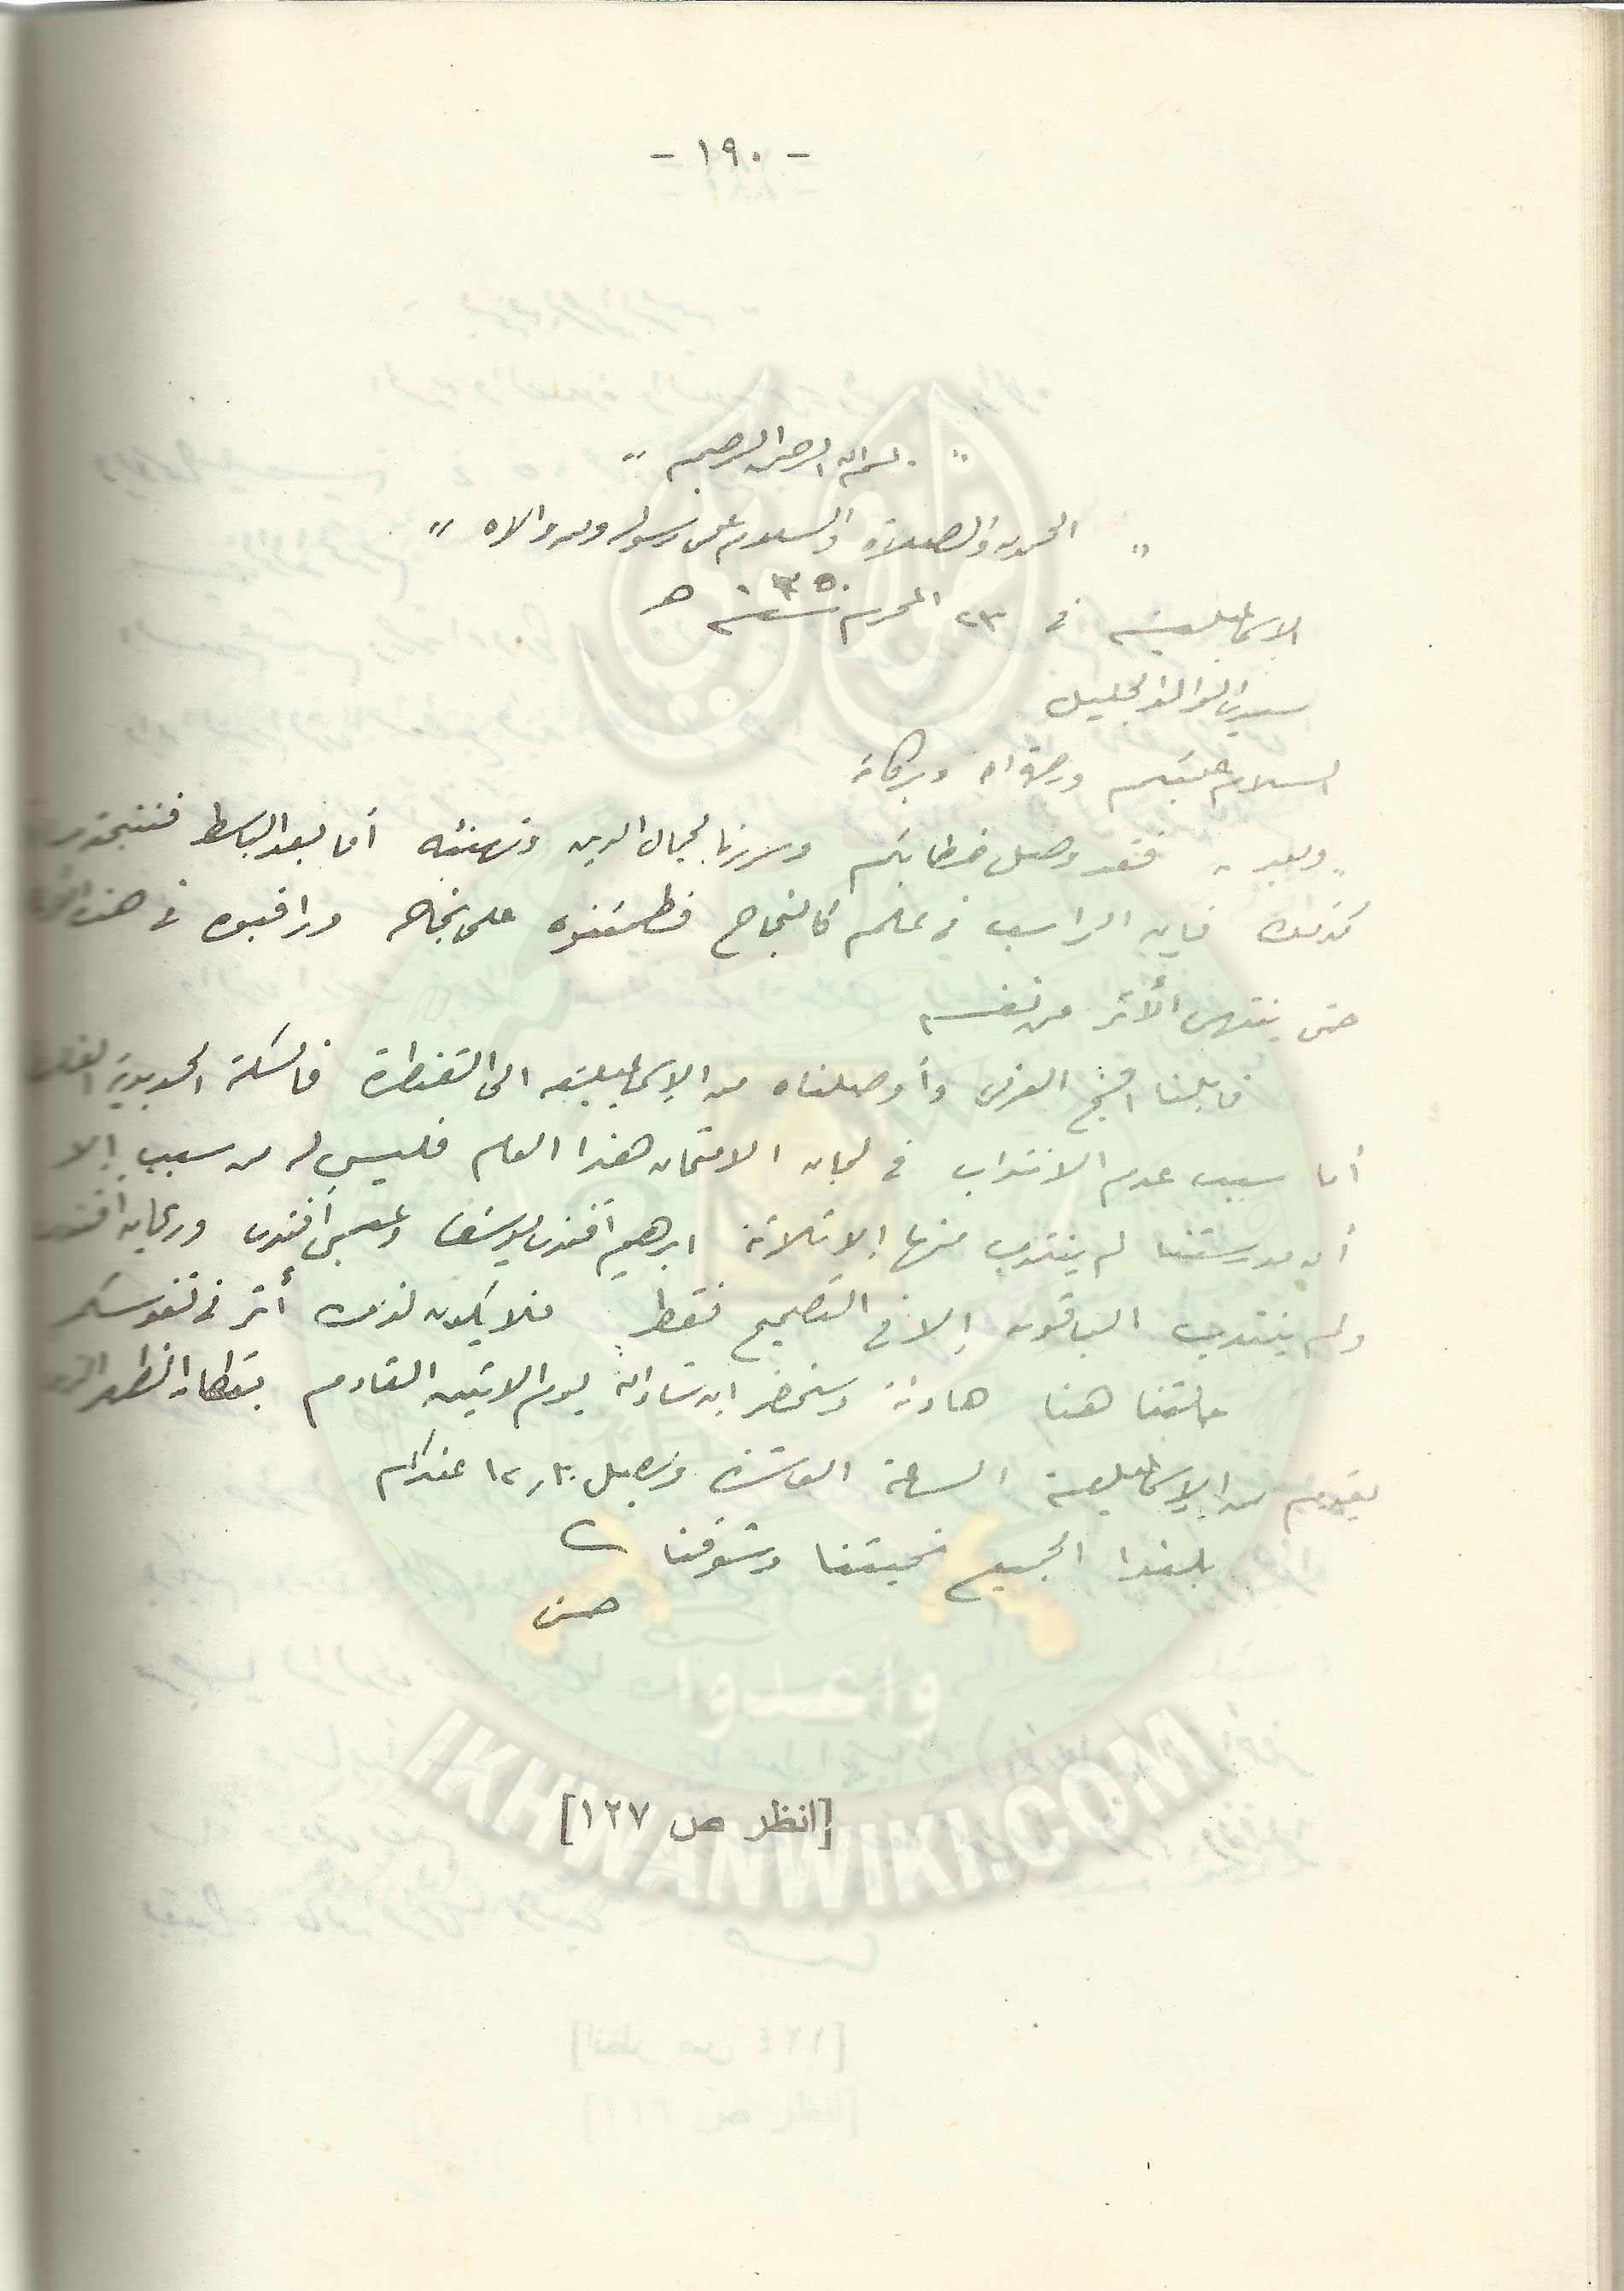 - ١٩٠ -
" بسم الله الرحمن الرحيم "
" الحمد لله والصلاة والسلام على رسوله ومن والاه "
الإسماعيلية في ٢٣ المحرم سنة ١٣٥٠ هـ
سيدي الوالد الجليل
السلام عليكم ورحمة الله وبركاته
وبعد ، فقد وصل خطابكم وسررنا لجمال الدين ونهنئه أما عبد الباسط
كذلك فإن الراسب في علم كالنجاح فطمئنوه على نجاحه وراقبوه في هذه
حتى ينتهي الأثر من نفسه
قابلنا الشيخ وأوصلناه من الإسماعيلية الى القنطرة فالسكة الحديدية
أما سبب عدم الانتداب في لجان الامتحان هذا العام فليس له من سبب إلا
أن مدرستنا لم ينتدب منها إلا ثلاثة ابرهيم أفندي يوسف و أفندي و أفندي
ولم ينتدب الباقون إلا في التصحيح فقط فلا يكون لذلك أثر في نفوسكم
حالتنا هنا هادئة وسنحضر إن شاء الله يوم الاثنين القادم بقطار الظهر الذي
يقوم من الإسماعيلية الساعة العاشرة ويصل ١٢٫٣٠ عندكم
بلغوا الجميع تحيتنا وشوقنا
حسن
واعدوا
IKHWANWIKI.COM
[انظر ص ١٢٧]